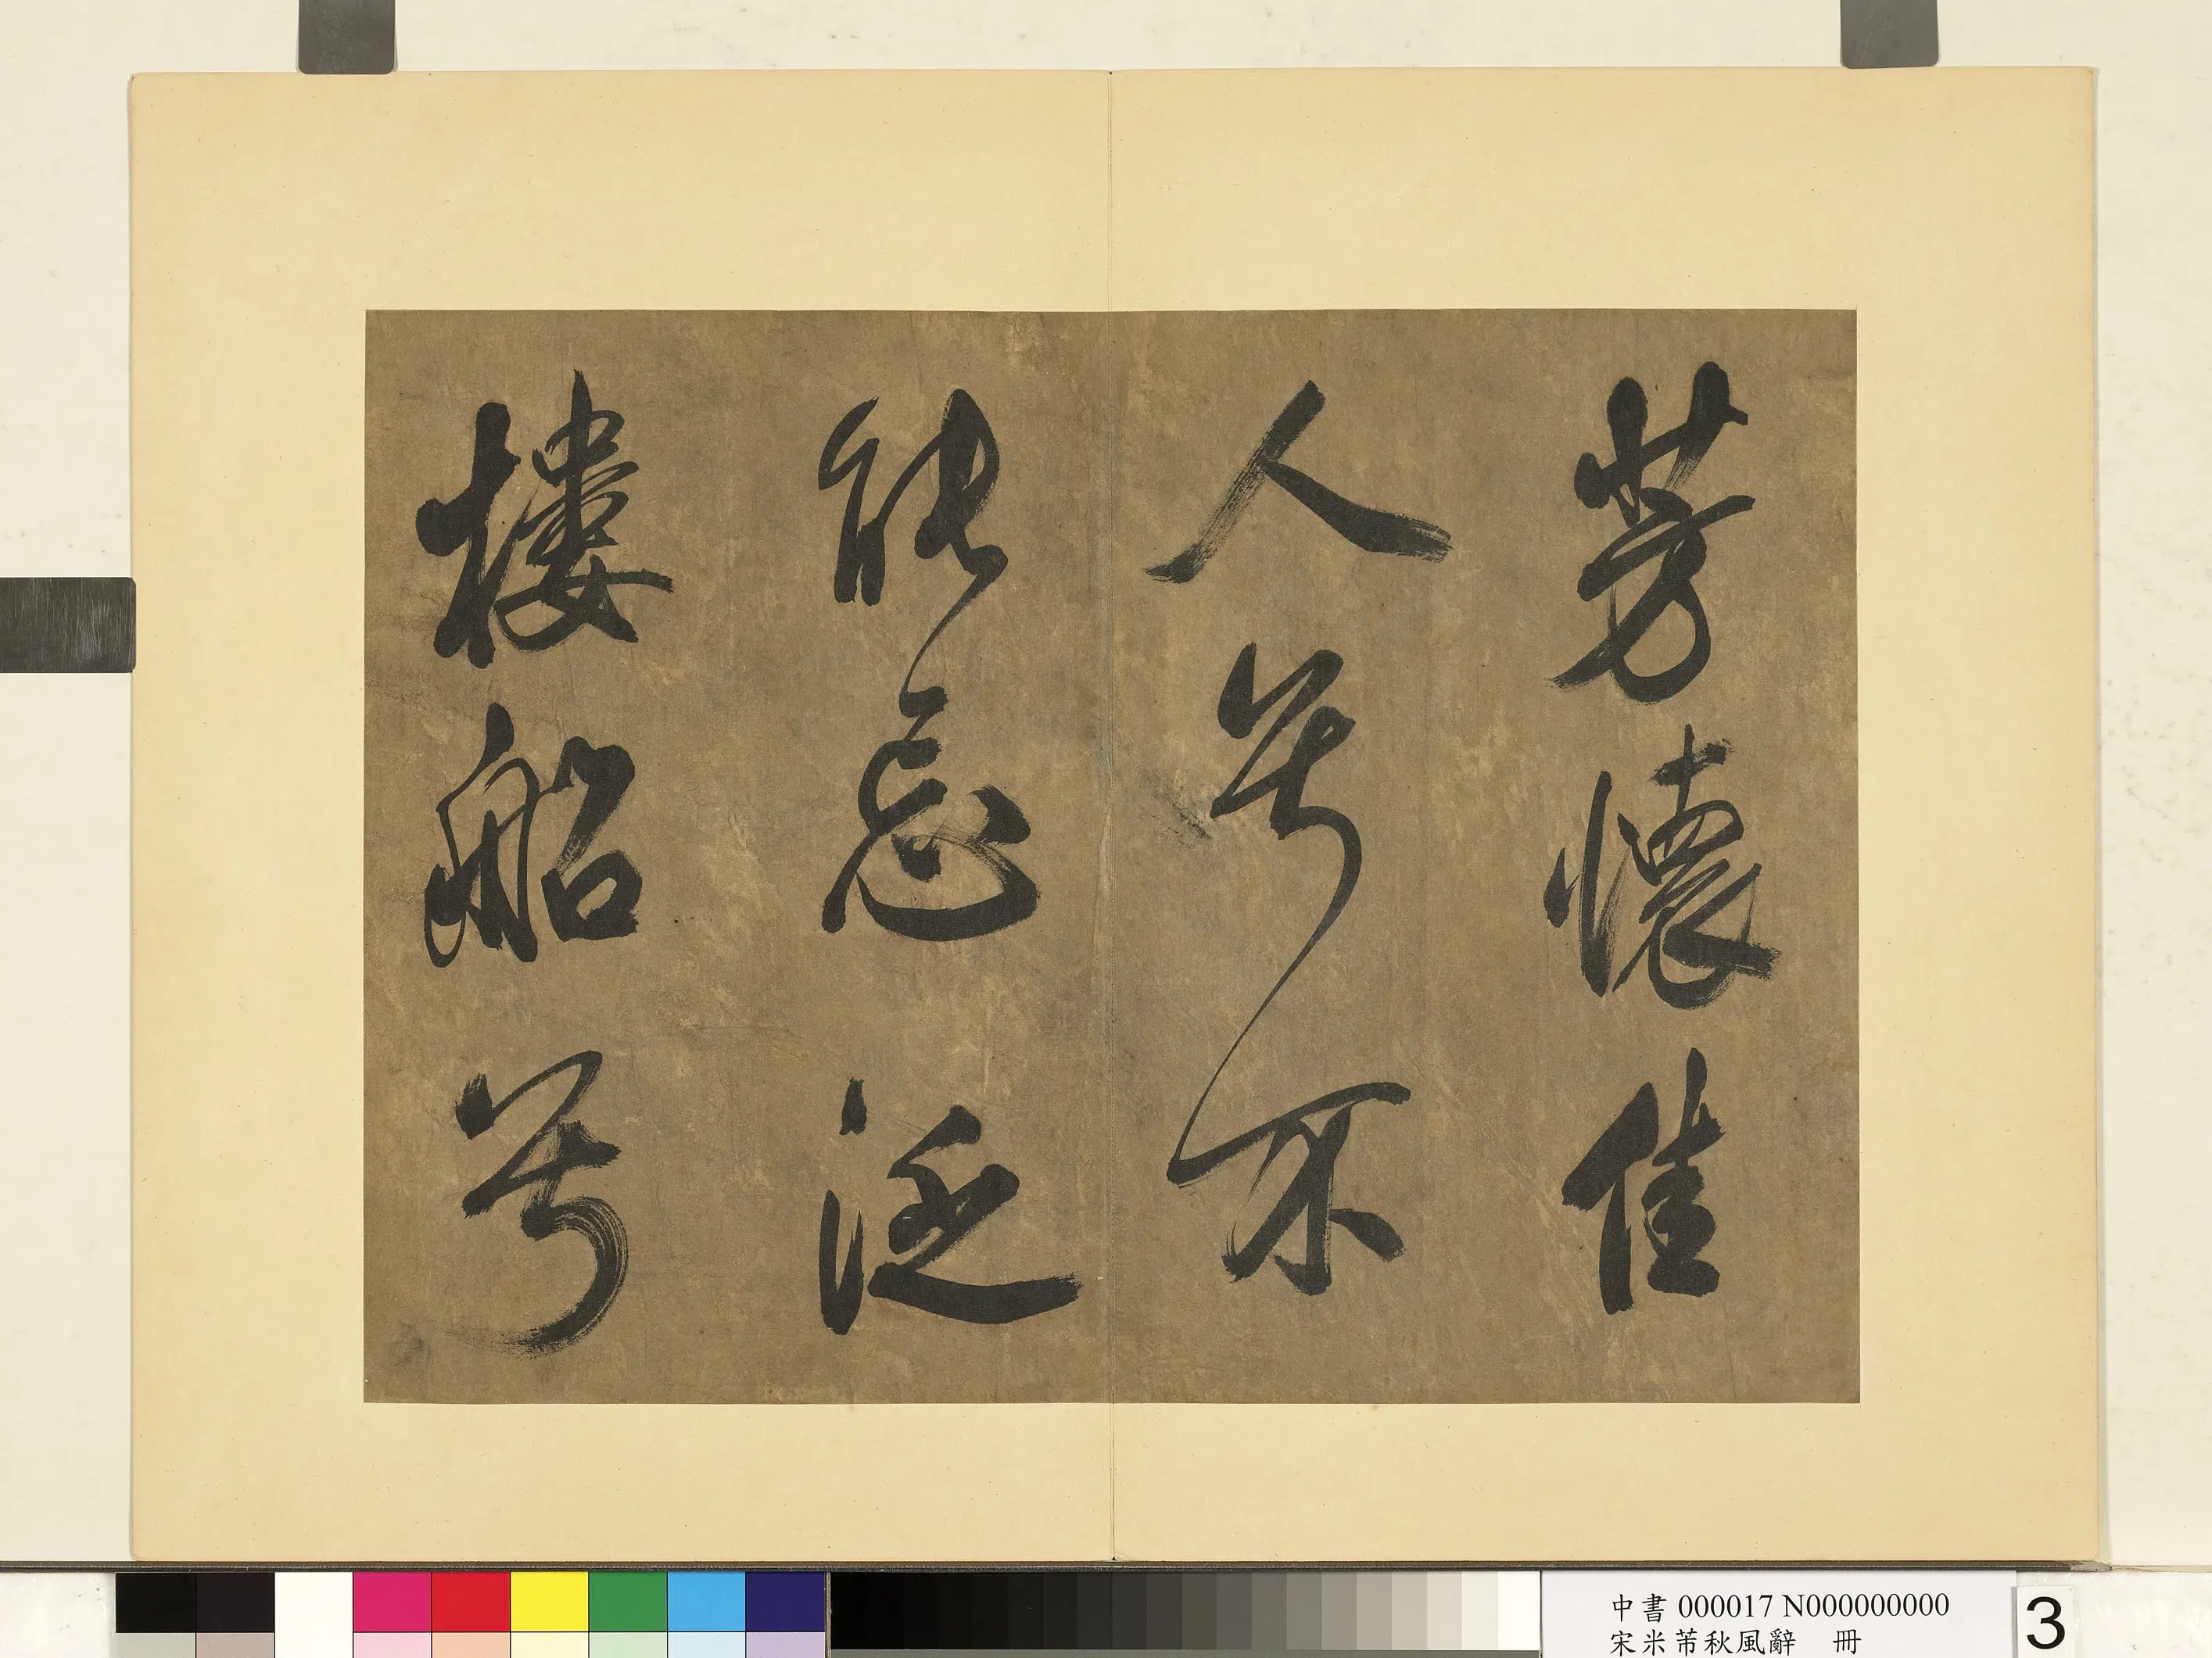 芳懷佳
人兮不
能忘泛
樓船兮
中書 000017 N000000000
宋米芾秋風辭 冊
3